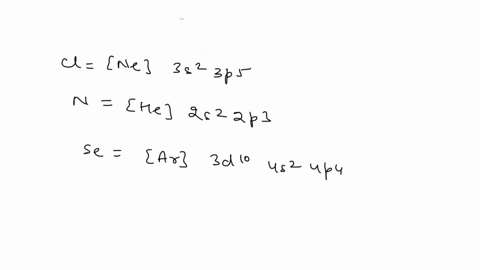 Cl = [Ne] 3s² 3p5
N = [He] 2s² 2p3
Se = [Ar] 3d¹⁰ 4s² 4p4